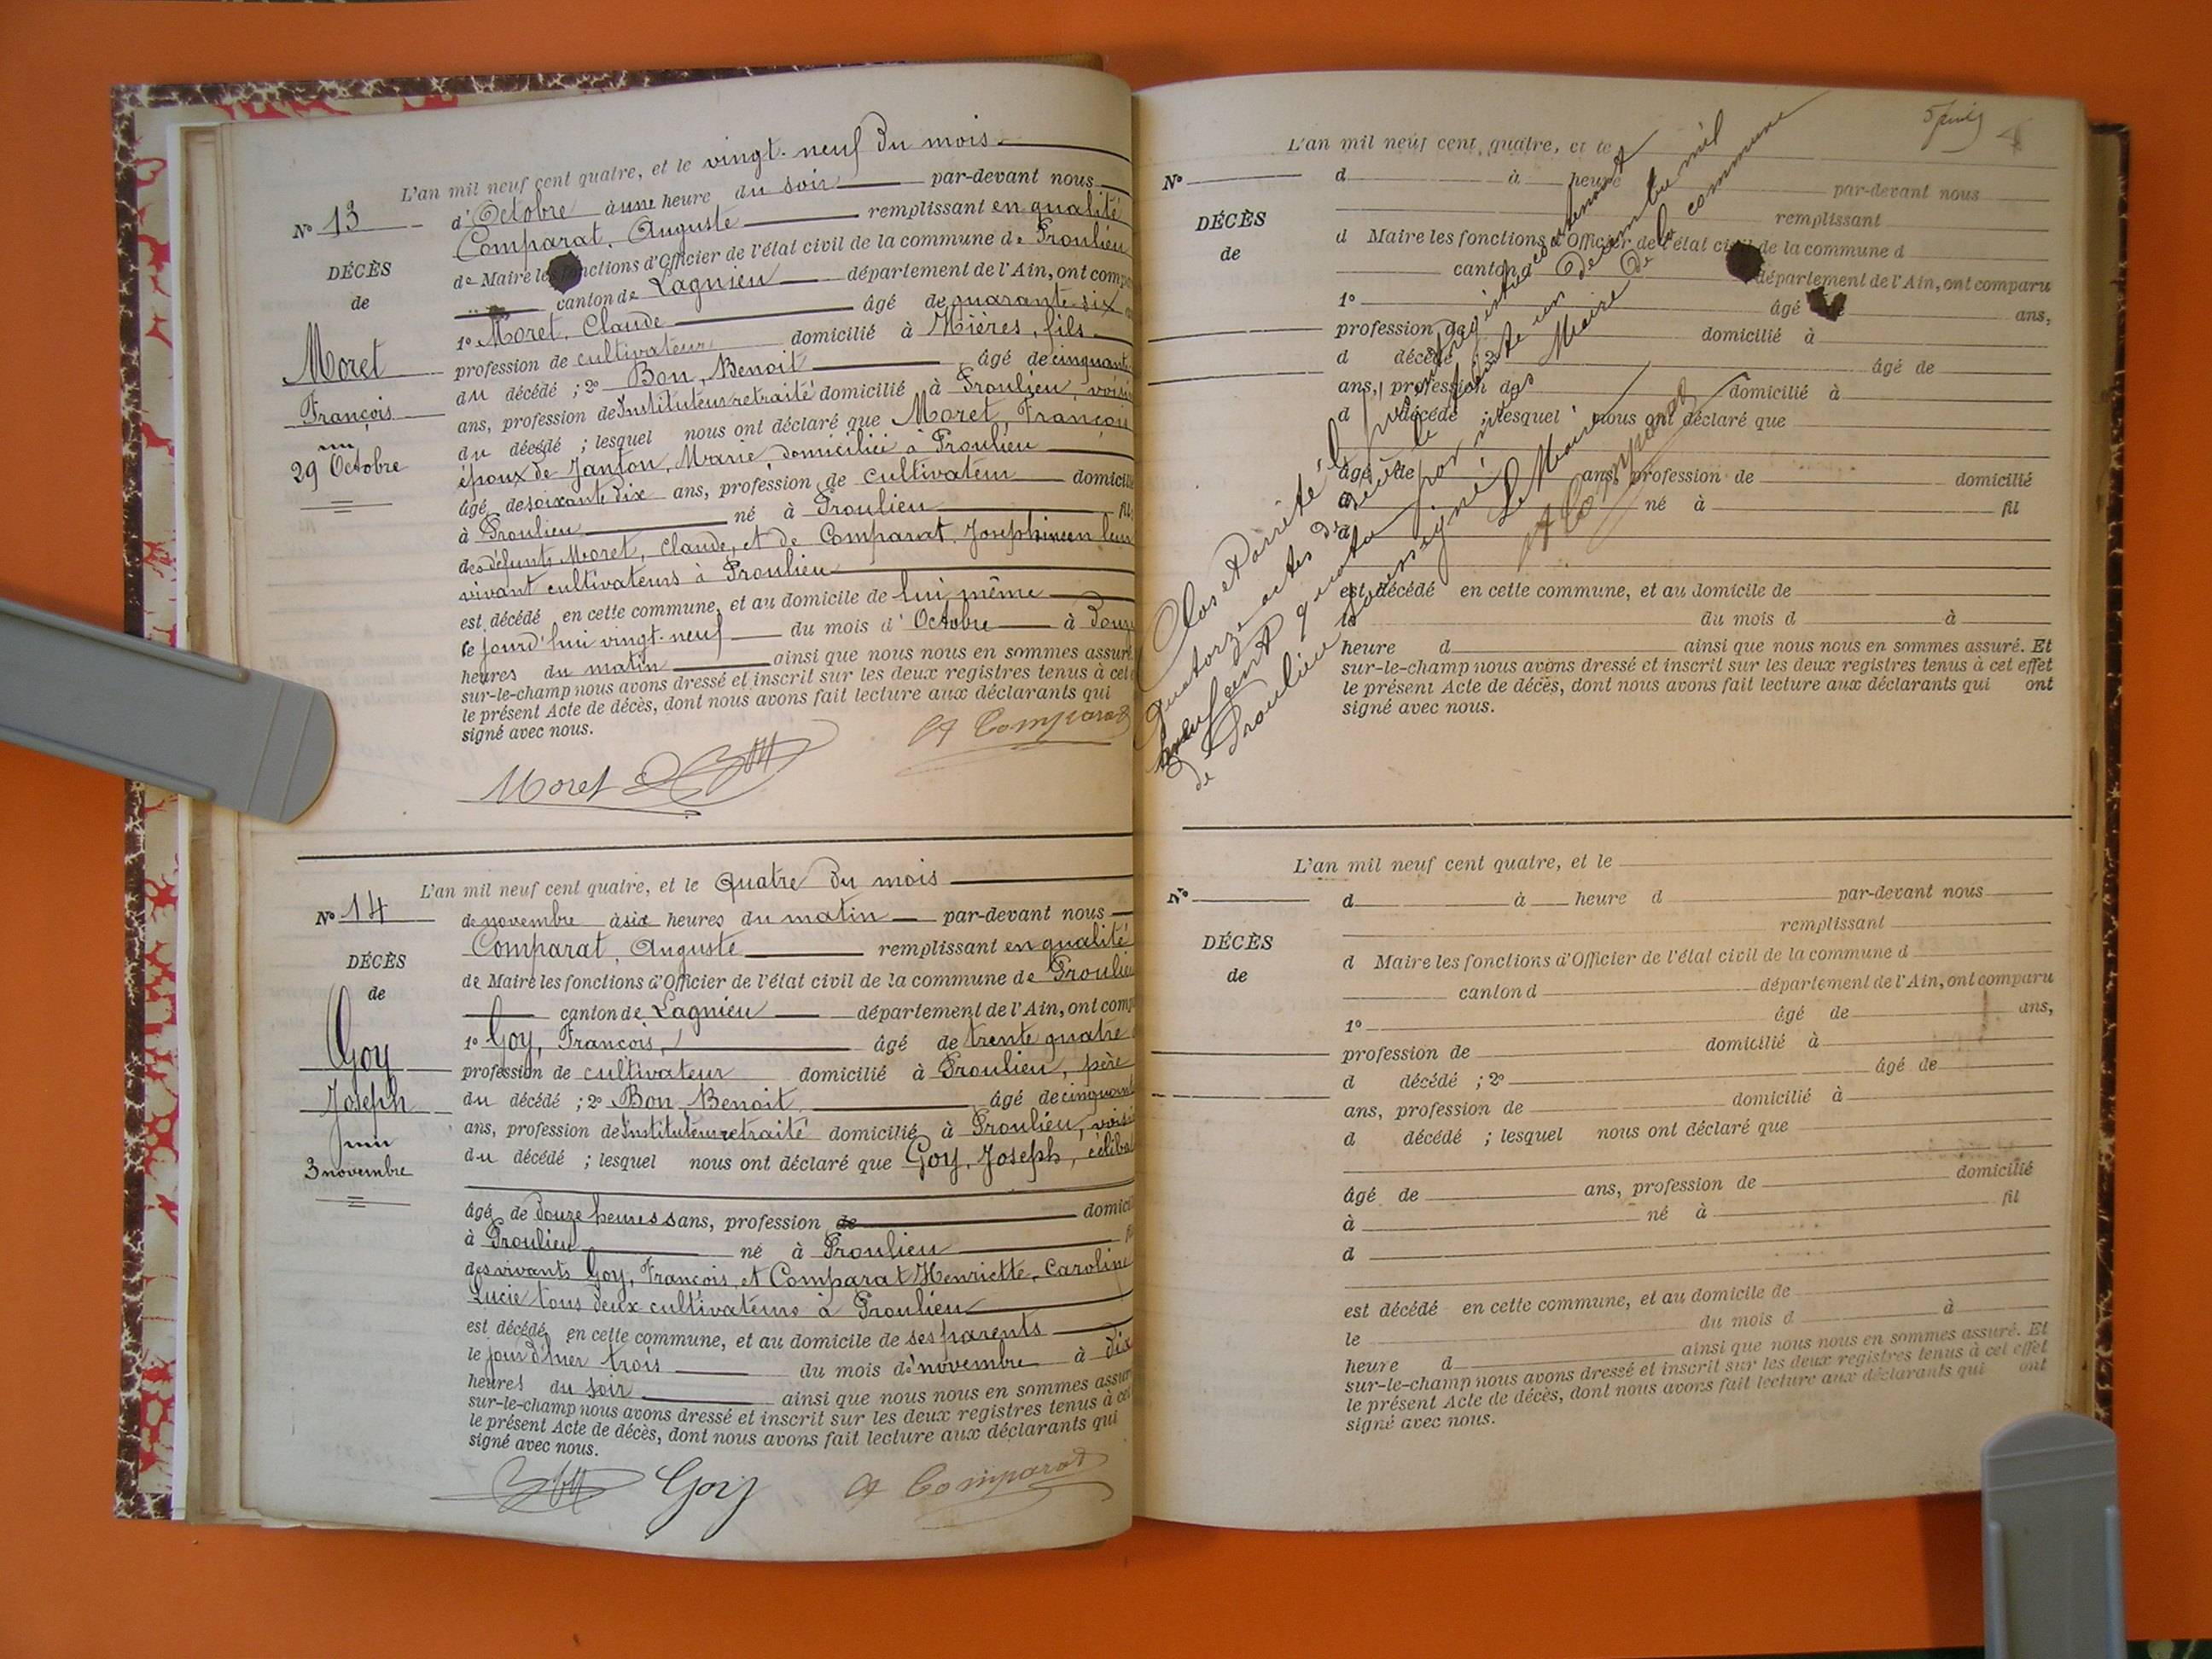 L'an mil neuf cent quatre, et le vingt-neuf du mois
No 13
d'Octobre à une heure du soir par-devant nous
Comparat, Auguste remplissant en qualité
DÉCÈS
de Maire les fonctions d'Officier de l'état civil de la commune de Proulieu
de
canton de Lagnieu département de l'Ain, ont comp
1o Moret, Claude âgé de quarante-six
Moret
profession de cultivateur domicilié à Hières, fils
François
du décédé ; 2o Bon, Benoit âgé de cinquant
ans, profession de Instituteur retraité domicilié à Proulieu, voisi
du décédé ; lesquel nous ont déclaré que Moret, François
29 Octobre
époux de Janton, Marie, domiciliée à Proulieu
âgé de soixante dix ans, profession de cultivateur domicilié
à Proulieu né à Proulieu fils
des défunts Moret, Claude, et de Comparat, Josephine en leur
vivant cultivateurs à Proulieu
est décédé en cette commune, et au domicile de lui même
le jourd'hui vingt-neuf du mois d'Octobre à Douze
heures du matin ainsi que nous nous en sommes assuré
sur-le-champ nous avons dressé et inscrit sur les deux registres tenus à cet e
le présent Acte de décès, dont nous avons fait lecture aux déclarants qui
signé avec nous.
Moret A Comparat
L'an mil neuf cent quatre, et le quatre du mois
No 14
de novembre à six heures du matin par-devant nous
Comparat, Auguste remplissant en qualité
DÉCÈS
de Maire les fonctions d'Officier de l'état civil de la commune de Proulieu
de
canton de Lagnieu département de l'Ain, ont comp
1o Goy, François, âgé de trente quatre
Goy
profession de cultivateur domicilié à Proulieu, père
Joseph
du décédé ; 2o Bon Benoit âgé de cinquant
ans, profession de Instituteur retraité domicilié à Proulieu, voisi
du décédé ; lesquel nous ont déclaré que Goy, Joseph, céliba
3 novembre
âgé de Douze heures ans, profession de domicil
à Proulieu né à Proulieu fi
des vivants Goy, François, et Comparat Henriette, Caroline
Lucie tous deux cultivateurs à Proulieu
est décédé en cette commune, et au domicile de ses parents
le jour d'hier trois du mois de novembre à dix
heures du soir ainsi que nous nous en sommes assur
sur-le-champ nous avons dressé et inscrit sur les deux registres tenus à cet
le présent Acte de décès, dont nous avons fait lecture aux déclarants qui
signé avec nous.
Goy A Comparat
L'an mil neuf cent quatre, et le
No
d à heure par-devant nous
remplissant
DÉCÈS
d Maire les fonctions d'Officier de l'état civil de la commune d
de
canton département de l'Ain, ont comparu
1o âgé de ans,
profession de domicilié à
d décédé ; 2o âgé de
ans, profession de domicilié à
d décédé ; lesquel nous ont déclaré que
âgé de ans, profession de domicilié
à né à fil
d
est décédé en cette commune, et au domicile de
le du mois d à
heure d ainsi que nous nous en sommes assuré. Et
sur-le-champ nous avons dressé et inscrit sur les deux registres tenus à cet effet
le présent Acte de décès, dont nous avons fait lecture aux déclarants qui ont
signé avec nous.
Clos et arrêté le présent registre contenant
quatorze actes de décès le trente un décembre mil
neuf cent quatre par nous Maire de la commune
de Proulieu soussigné
Le Maire
A Comparat
L'an mil neuf cent quatre, et le
No
d à heure d par-devant nous
remplissant
DÉCÈS
d Maire les fonctions d'Officier de l'état civil de la commune d
de
canton d département de l'Ain, ont comparu
1o âgé de ans,
profession de domicilié à
d décédé ; 2o âgé de
ans, profession de domicilié à
d décédé ; lesquel nous ont déclaré que
âgé de ans, profession de domicilié
à né à fil
d
est décédé en cette commune, et au domicile de
le du mois d à
heure d ainsi que nous nous en sommes assuré. Et
sur-le-champ nous avons dressé et inscrit sur les deux registres tenus à cet effet
le présent Acte de décès, dont nous avons fait lecture aux déclarants qui ont
signé avec nous.